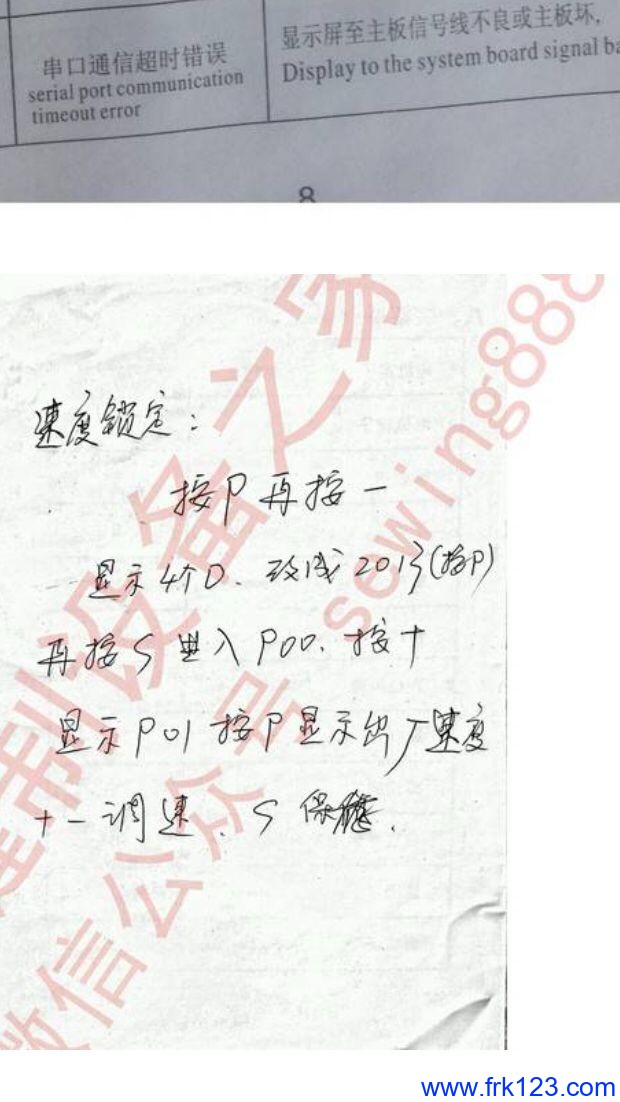 串口通信超时错误
serial port communication
timeout error
显示屏至主板信号线不良或主板坏,
Display to the system board signal ba
8
速度锁定:
按P再按一
显示4个0、改成2013(按P)
再按S进入P00、按+
显示P01按P显示出厂速度
+一调速、S保
制设备之家
微信公众号
sewing888
www.frk123.com